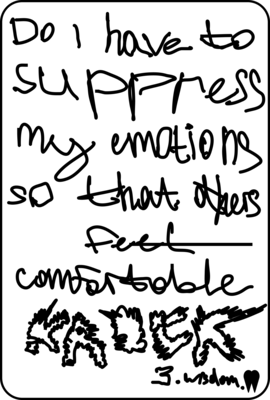 Do i have to
suppress
my emotions
so that others
feel
comfortable
KADER
3. wisdom.